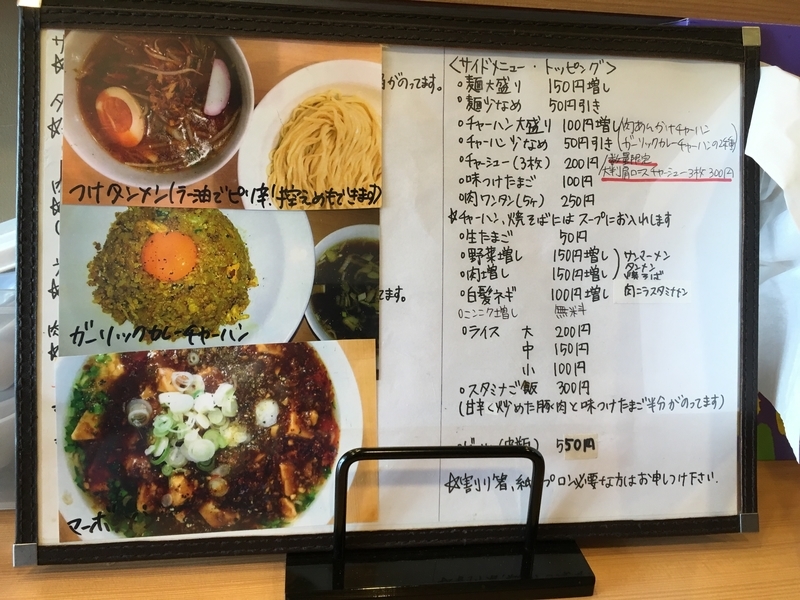 つけタンメン(ラー油でピリ辛!控えめもできます)
ガーリックカレーチャーハン
マーボ
がのってます。
てます。
<サイドメニュー・トッピング>
○麺大盛り 150円増し
○麺少なめ 50円引き
○チャーハン大盛り 100円増し
○チャーハン少なめ 50円引き
(肉あんかけチャーハン
ガーリックカレーチャーハンの2種)
○チャーシュー(3枚) 200円
数量限定
大判肩ロースチャーシュー3枚 300円
○味つけたまご 100円
○肉ワンタン(5ヶ) 250円
☆チャーハン、焼そばにはスープにお入れします
○生たまご 50円
○野菜増し 150円増し
○肉増し 150円増し
サンマーメン
タンメン
焼そば
○白髪ネギ 100円増し 肉ニラスタミナトン
○ニンニク増し 無料
○ライス 大 200円
中 150円
小 100円
○スタミナご飯 300円
(甘辛く炒めた豚肉と味つけたまご半分がのってます)
550円
☆割り箸、紙プロン必要な方はお申しつけ下さい.